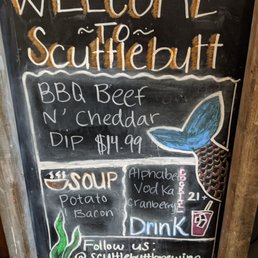 WELCOME
~TO~
Scuttlebutt
BBQ Beef
N' Cheddar
Dip $14.99
SOUP
Potato
Bacon
Alphabet
Vodka
Cranberry
21+
Drink
Follow us: